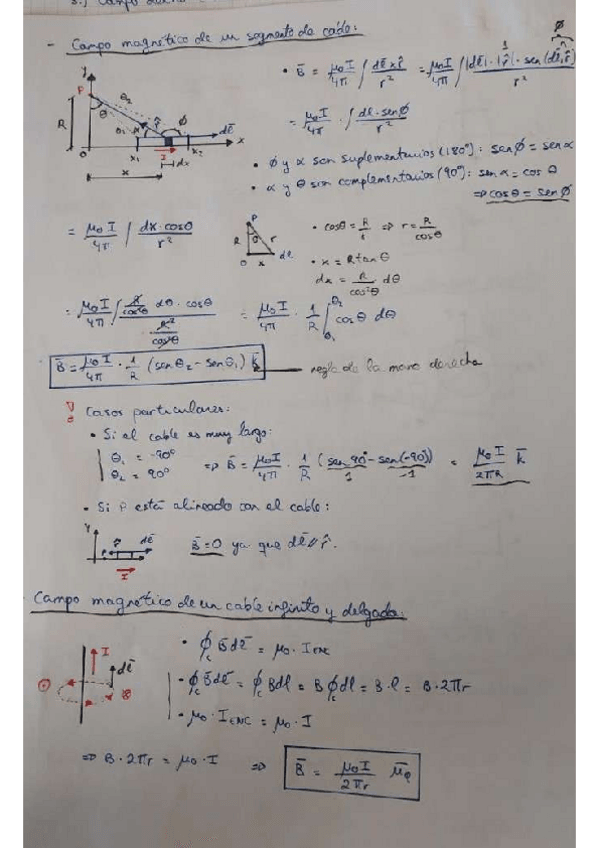 - Campo magnético de un segmento de cable:
• B̄ = μ₀I/4π ∫ dℓ̄ x r̂ / r² = μ₀I/4π ∫ |dℓ̄|·|r̂|·sen(dℓ̄,r̂) / r²
1
ϕ
= μ₀I/4π · ∫ dℓ·senϕ / r²
y
P
R
θ₂
θ
θ₁
α
r̂
ϕ
dℓ̄
O
x₁
I
x₂
x
dx
x
• ϕ y α son suplementarios (180º): senϕ = senα
• α y θ son complementarios (90º): senα = cosθ
⇒ cosθ = senϕ
= μ₀I/4π ∫ dx·cosθ / r²
P
R
θ
r
O
x
dℓ
• cosθ = R/r ⇒ r = R/cosθ
• x = R tanθ
dx = R/cos²θ dθ
= μ₀I/4π ∫ R/cos²θ dθ·cosθ / R²/cos²θ = μ₀I/4π · 1/R ∫θ₁^θ₂ cosθ dθ
B̄ = μ₀I/4π · 1/R (senθ₂ - senθ₁) k̄ regla de la mano derecha
Casos particulares:
• Si el cable es muy largo:
θ₁ = -90º
θ₂ = 90º
⇒ B̄ = μ₀I/4π · 1/R (sen90º - sen(-90º)) = μ₀I/2πR k̄
1
-1
• Si P está alineado con el cable:
y
P
r̂
dℓ̄
x
I
B̄=0 ya que dℓ̄ // r̂.
Campo magnético de un cable infinito y delgado:
I
dℓ̄
• ∮c B̄dℓ̄ = μ₀·I ENC
• ∮c B̄dℓ̄ = ∮c Bdℓ = B∮dℓ = B·ℓ = B·2πr
• μ₀·I ENC = μ₀·I
⇒ B·2πr = μ₀·I ⇒ B̄ = μ₀I/2πr μ̄φ